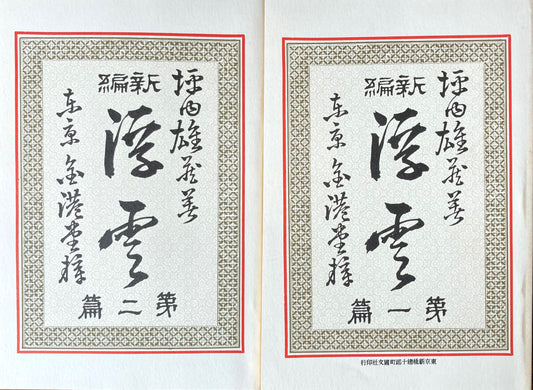 坪内雄蔵著
新編
浮雲
東京 金港堂梓
第一篇
東京新橋總十郎町國文社印行
坪内雄蔵著
新編
浮雲
東京 金港堂梓
第二篇